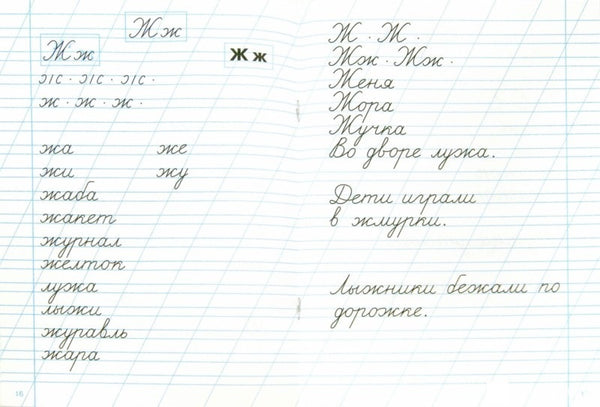 Ж ж
Ж ж
Ж ж
ж · ж · ж ·
жа же
жи жу
жаба
жакет
журнал
желток
лужа
лыжи
журавль
жара
16
Ж · Ж ·
Жж · Жж ·
Женя
Жора
Жучка
Во дворе лужа.
Дети играли
в жмурки.
Лыжники бежали по
дорожке.